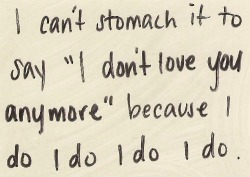 I can't stomach it to
say "I don't love you
anymore" because I
do I do I do I do.